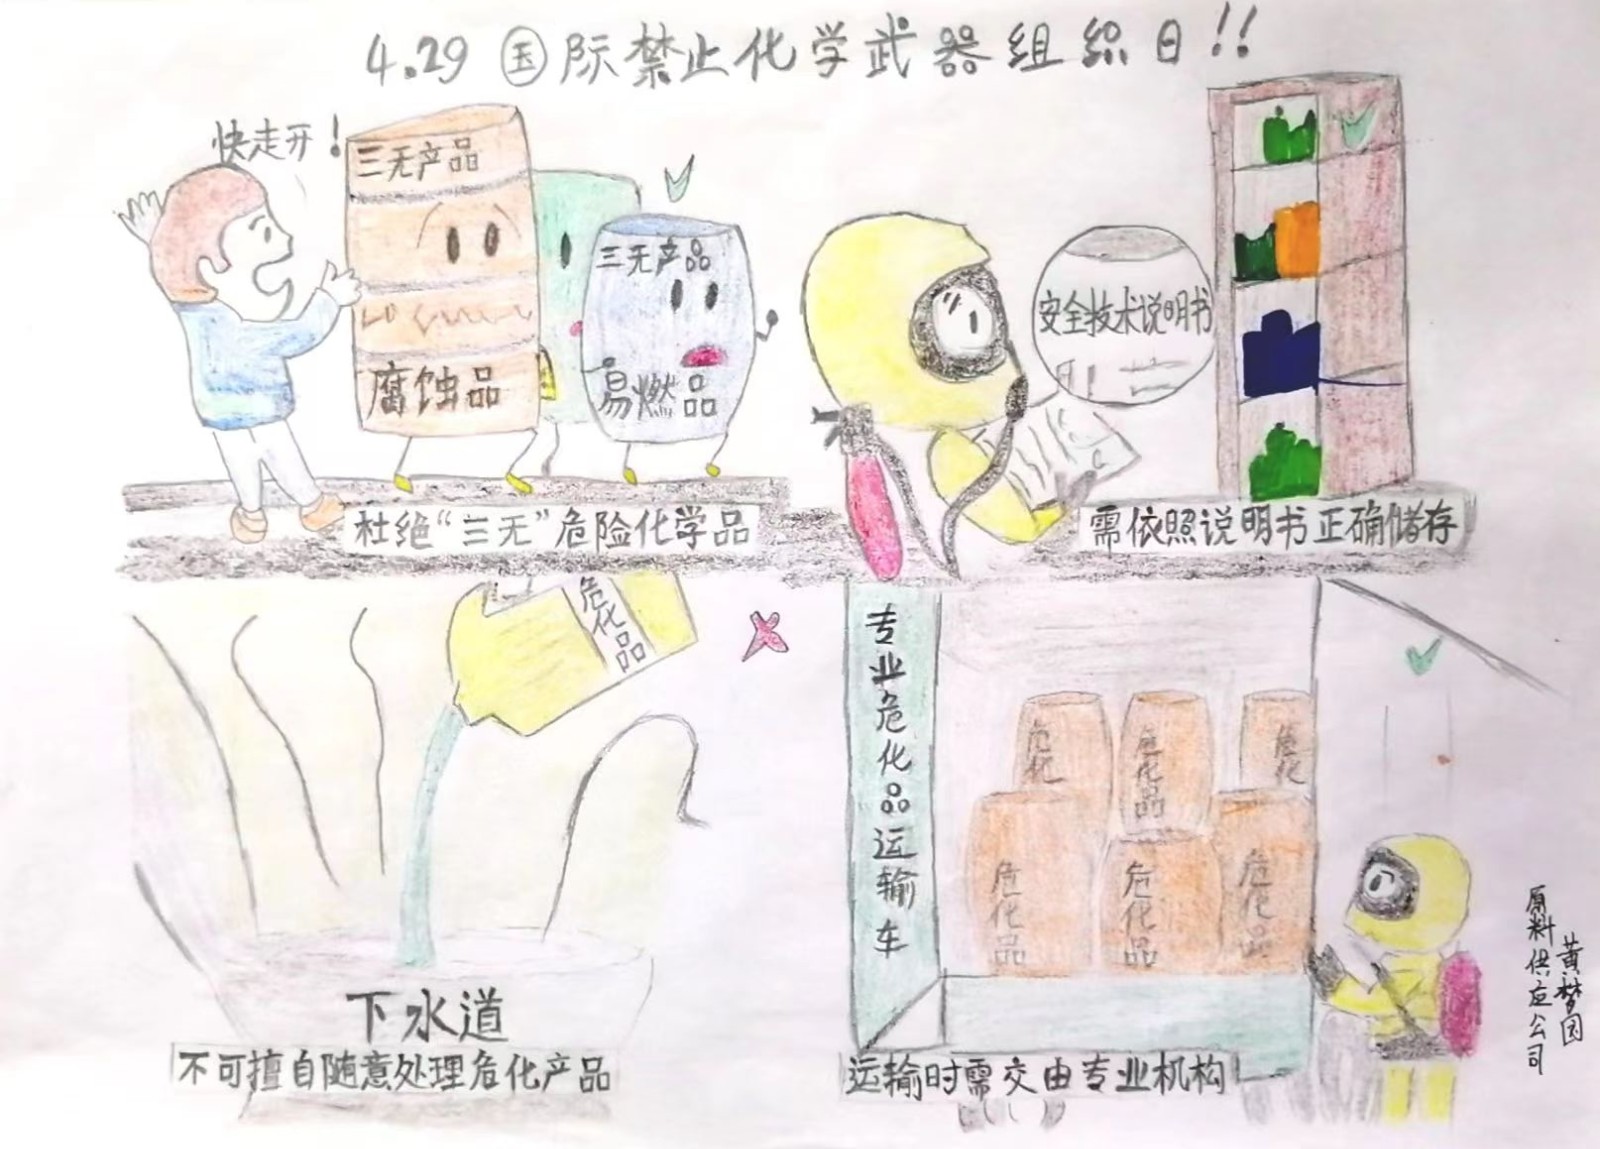 4.29 国际禁止化学武器组织日!!
快走开!
三无产品
腐蚀品
三无产品
易燃品
杜绝“三无”危险化学品
安全技术说明书
需依照说明书正确储存
危化品
下水道
不可擅自随意处理危化产品
专业危化品运输车
危化
危化品
危化
危化品
危化品
危化品
运输时需交由专业机构
原料供应公司
黄梦园